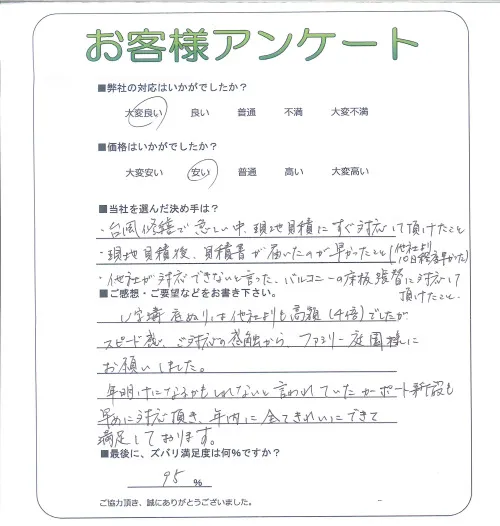 お客様アンケート
■弊社の対応はいかがでしたか?
大変良い 良い 普通 不満 大変不満
■価格はいかがでしたか?
大変安い 安い 普通 高い 大変高い
■当社を選んだ決め手は?
・台風修繕で忙しい中、現地見積にすぐ対応して頂けたこと
・現地見積後、見積書が届いたのが早かったこと(他社より
10日程早かった)
・他社が対応できないと言った、バルコニーの床板張替に対応して
頂けたこと。
■ご感想・ご要望などをお書き下さい。
は他社よりも高額(4倍)でしたが
スピード感、ご対応の感触から、ファミリー庭園様に
お願いしました。
年明けになるかもしれないと言われていたカーポート新設も
早めに対応頂き、年内に全てきれいにできて
満足しております。
■最後に、ズバリ満足度は何%ですか?
95 %
ご協力頂き、誠にありがとうございました。